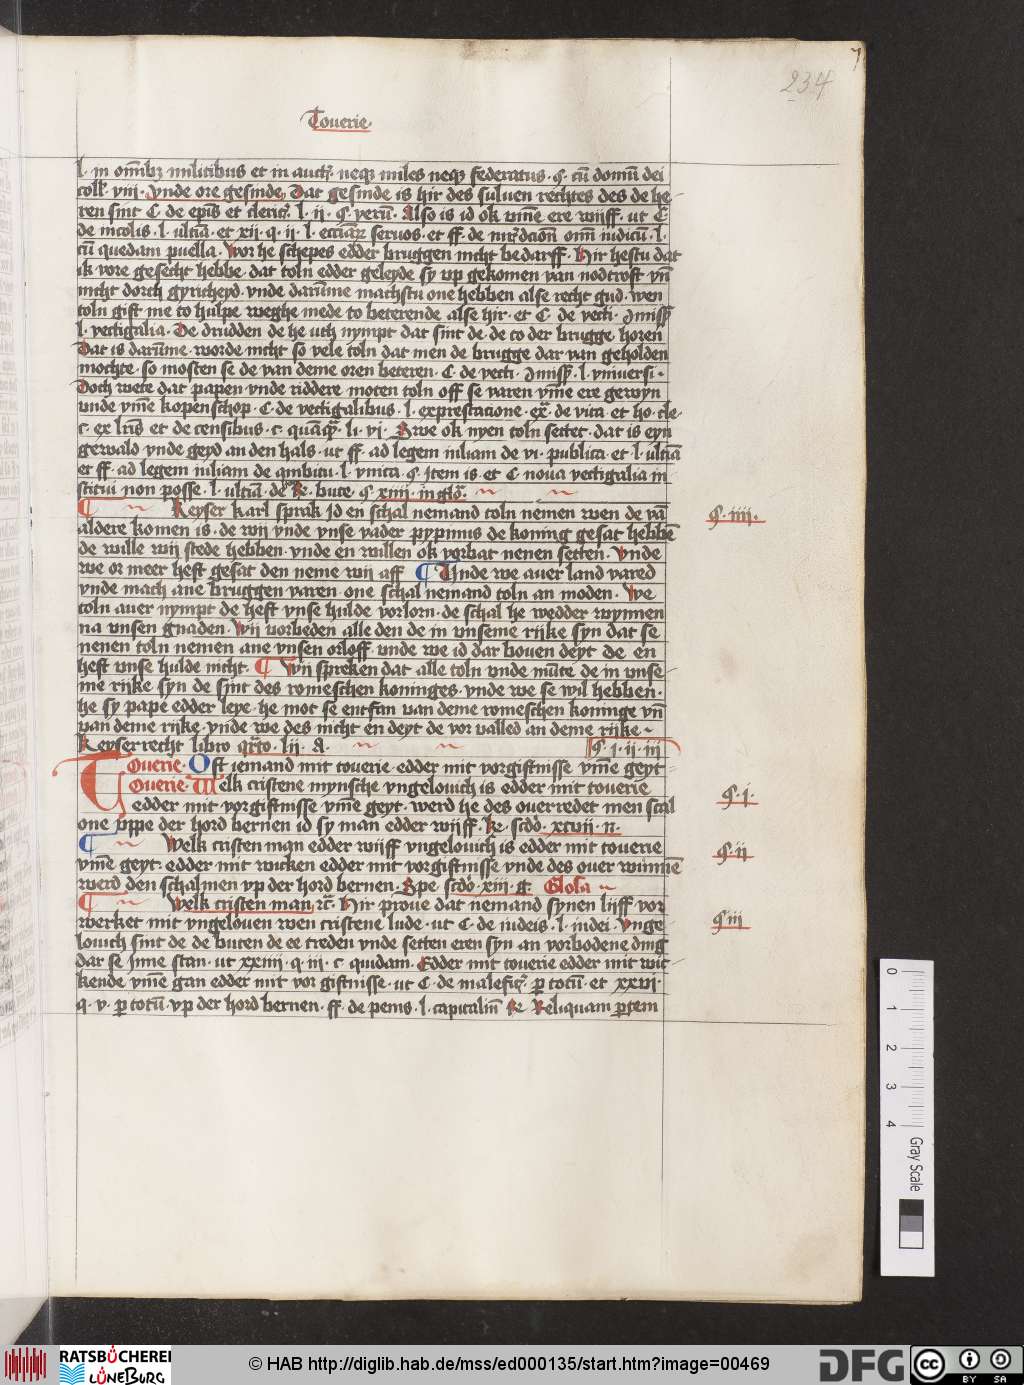 234
Touerie.
l. in om̄ibꝫ militibus et in auctꝛ. neqꝫ miles neqꝫ federatus. §. cū domū dei
coll. viij. vnde ore gesinde, Dat gesinde is hir des suluen rechtes des de he
ren sint C. de ep̄is et cleric̄. l. ij. §. verū. Also is id ok vm̄e ere wijff. ut C.
de incolis. l. ultīa. et xij. q. ij. l. eccl̄iaꝝ seruos. et ff. de iudicū. l.
cū quedam puella. Wor he schepes edder bruggen nicht bedarff. Hir hestu dat
ik vore gesecht hebbe. dat toln edder geleyde sy vp gekomen van nodtroft vn̄
nicht dorch gyricheyd. vnde darūme machstu one hebben alse recht gud. wen
toln gift me to hulpe weghe mede to beterende alse hir. et C. de vecti. Imiss
l. vectigalia. De drudden de he uth nympt dat sint de. de to der brugge horen
Dat is darūme. worde nicht so vele toln dat men de brugge dar van geholden
mochte. so mosten se de van deme oren beteren. C. de vecti. Imiss. l. vniuersi.
Doch wete dat papen vnde riddere moten toln off se varen vm̄e ere gewyn
vnde vm̄e kopenschop. C. de vectigalibus. l. ex prestacione. ex̄. de vita et ho. cle
c. ex l̄ris et de censibus. c. quāqꝫ. li. vj. Swe ok nyen toln settet. dat is eyn
gewald vnde geyd an den hals. ut ff. ad legem iuliam de vi. publica et l. ultīa
et ff. ad legem iuliam de ambitu. l. vnica. §. Item is. et C. noua vectigalia in
stitui non posse. l. ultīa. de Re. bute. §. xiiij. in glo.
¶ Keyser Karl sprak Id en schal nemand toln nemen wen de vā
aldere komen is. de wij vnde vnse vader pypinus de koning gesat hebbē
de wille wij stede hebben. vnde en willen ok vorbat nenen setten. Vnde
we or meer heft gesat den neme wij aff ¶ Vnde we auer land vared
vnde mach ane bruggen varen. one schal nemand toln an moden. We
toln auer nympt de heft vnse hulde vorlorn. de schal he wedder wynnen
na vnsen gnaden. Wij vorbeden alle den de in vnseme rijke syn dat se
nenen toln nemen ane vnsen orloff. vnde we id dar bouen deyt de en
heft vnse hulde nicht. ¶ Wij spreken dat alle toln vnde mūte de in vnse
me rijke syn de sint des romeschen koninges. vnde we se wil hebben.
he sy pape edder leye. he mot se entfan van deme romeschen koninge vn̄
van deme rijke. vnde we des nicht en deyt de vor valled an deme rijke.
Keyserrecht libro qr̄to. lij. A. §. j. ij. iij
§. iiij.
Touerie. Oft iemand mit touerie. edder mit vorgiftnisse vm̄e geyt
Touerie. Welk cristene mynsche vngelouich is edder mit touerie
edder mit vorgiftnisse vm̄e geyt. werd he des ouerredet men scal
one vppe der hord bernen id sy man edder wijff. Re. scdo. xcvij. n.
§. j.
¶ Welk cristen man edder wijff vngelouich is edder mit touerie
vm̄e geyt. edder mit wicken edder mit vorgiftnisse vnde des ouer winnē
werd den schal men vp der hord bernen. Spe. scdo. xiij. g. Glosa
§. ij
¶ Welk cristen man rc̄. Hir proue dat nemand synen lijff vor
werket mit vngelouen wen cristene lude. ut C. de iudeis. l. iudei. Vnge
louich sint de de buten de ee treden vnde setten eren syn an vorbodene ding
dar se Inne stan. ut xxiiij. q. iij. c. quidam. Edder mit touerie edder mit wic
kende vm̄e gan edder mit vor giftnisse. ut C. de malefic̄. ꝑ totū. et xxvj.
q. v. ꝑ totū. vp der hord bernen. ff. de penis. l. capitaliū Re Reliquam ꝑtem
§. iij
0 1 2 3 4 Gray Scale
RATSBÜCHEREI LÜNEBURG
© HAB http://diglib.hab.de/mss/ed000135/start.htm?image=00469
DFG
cc BY SA